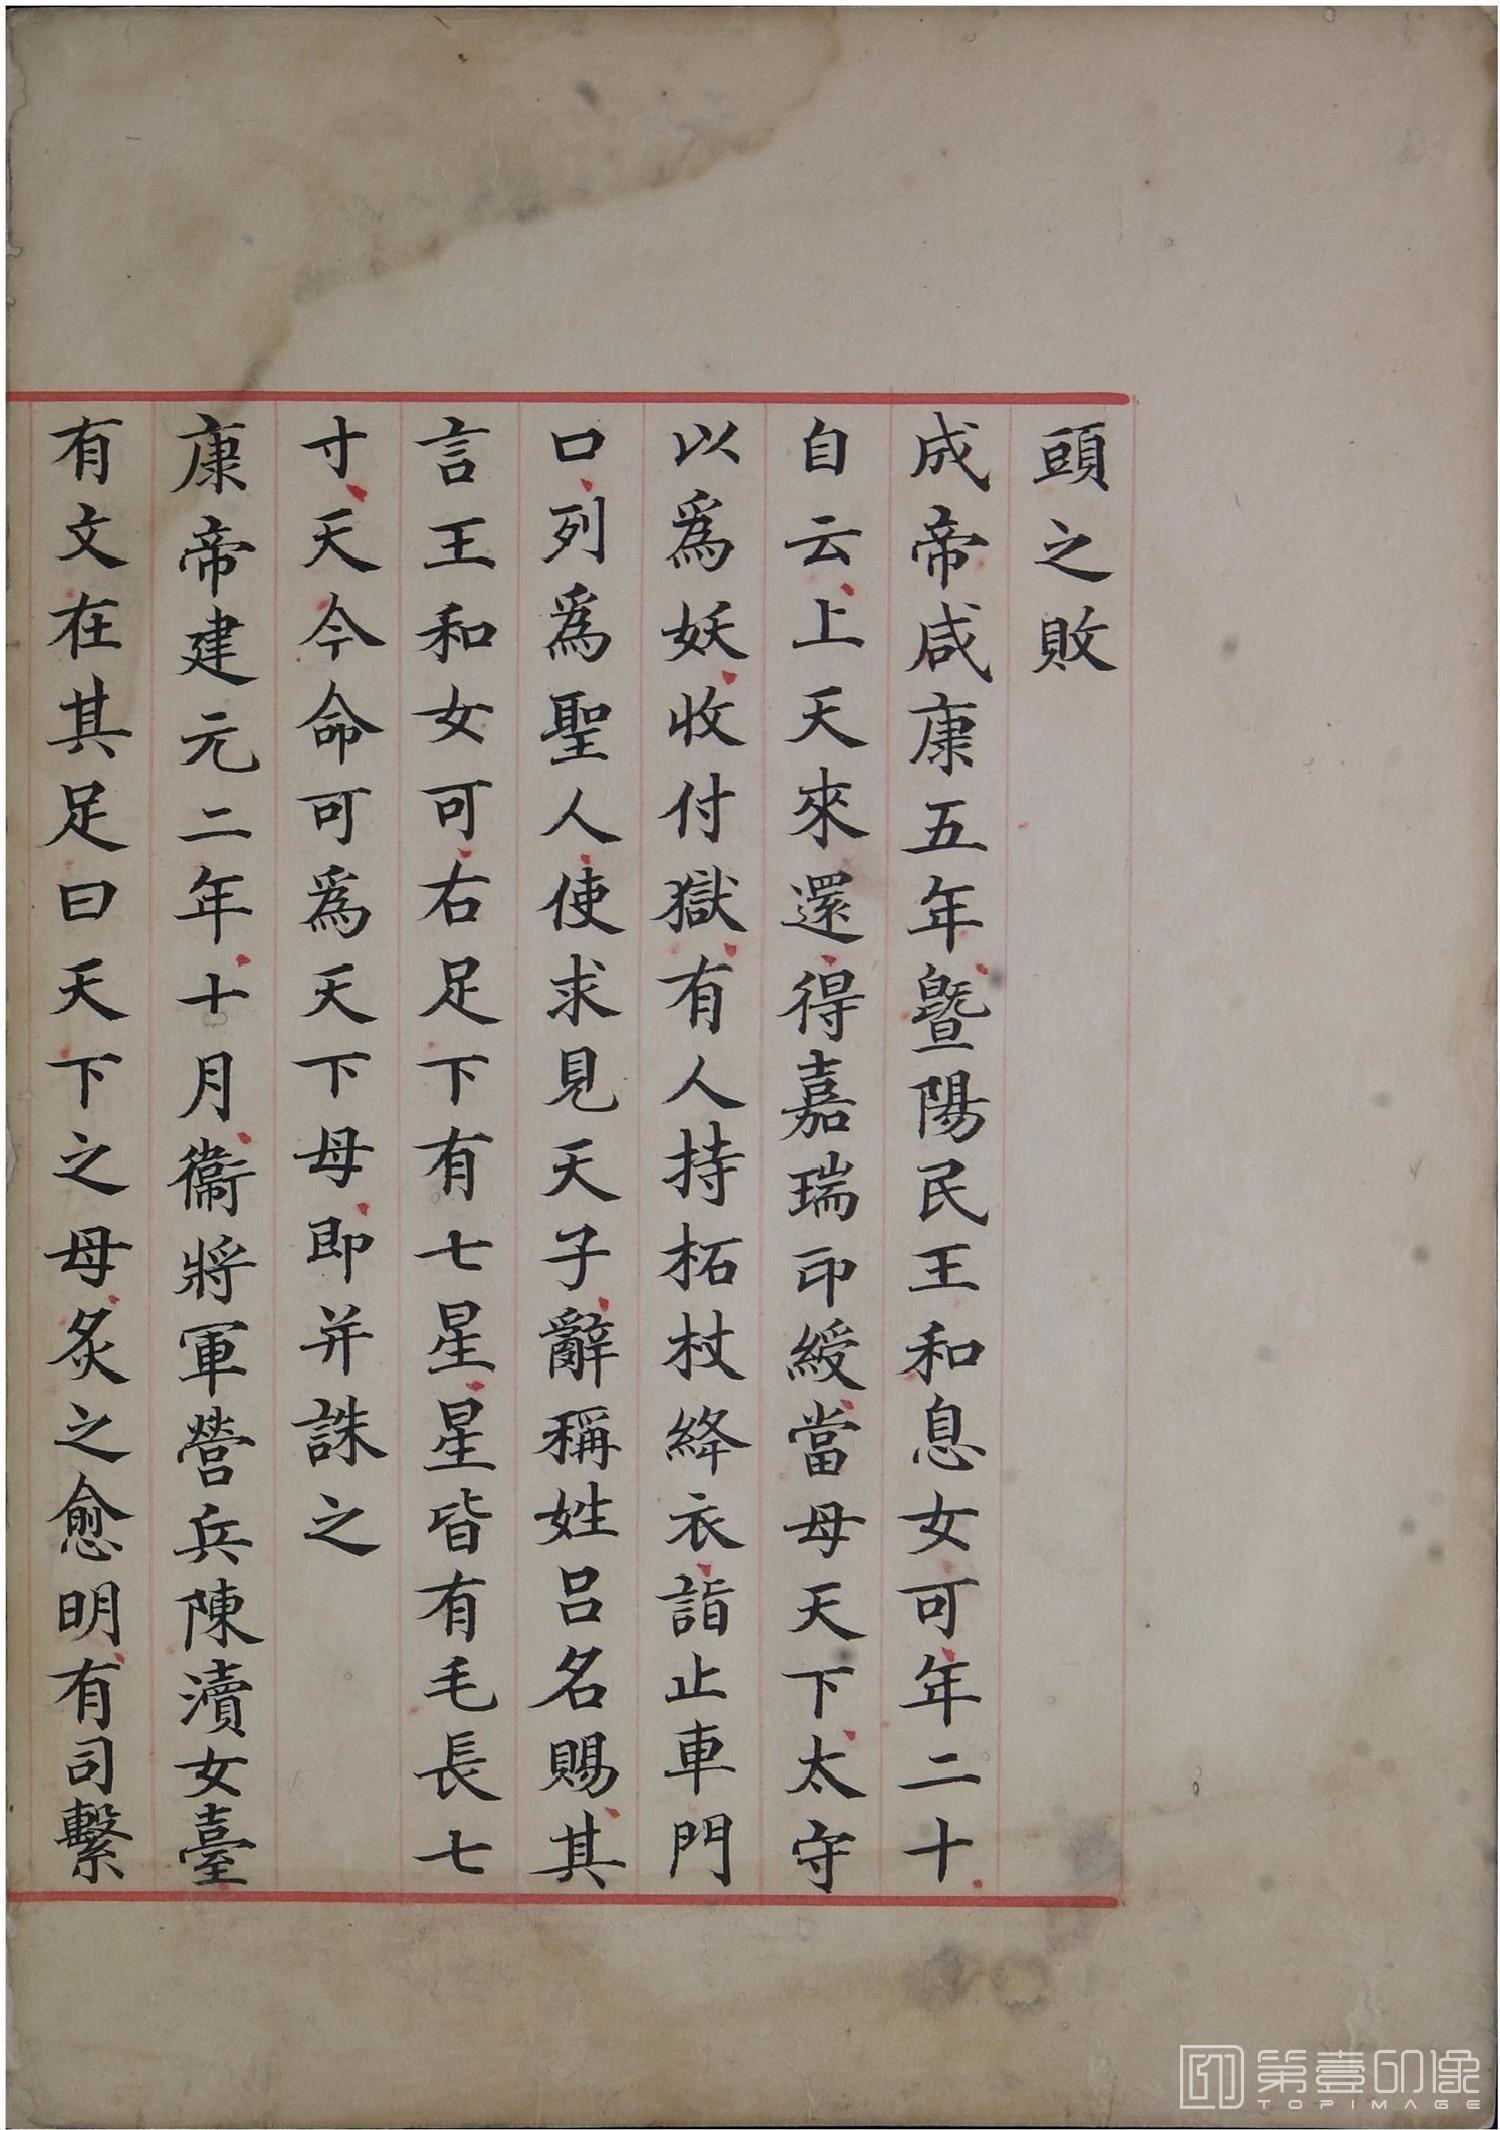 頭之敗
成帝咸康五年曁陽民王和息女可年二十
自云上天來還得嘉瑞印綬當母天下太守
以爲妖收付獄有人持柘杖絳衣詣止車門
口列爲聖人使求見天子辭稱姓呂名賜其
言王和女可右足下有七星星皆有毛長七
寸天今命可爲天下母即并誅之
康帝建元二年十月衞將軍營兵陳瀆女臺
有文在其足曰天下之母炙之愈明有司繫
第壹印像
TOPIMAGE